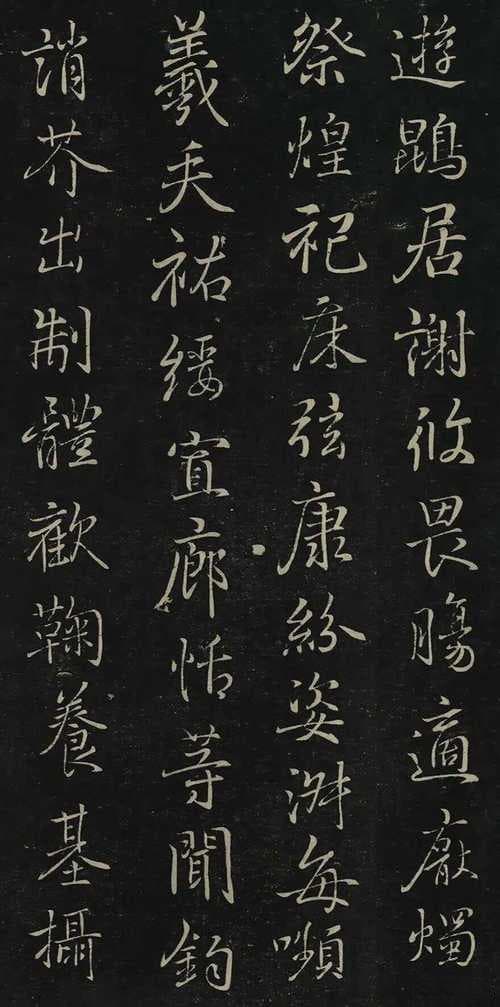 遊鵾居謝攸畏腸適厭燭
祭煌祀床弦康紛姿淑每嚬
羲矢祐綏宜廊恬等聞鈞
誚芥出制體歡鞠養基攝